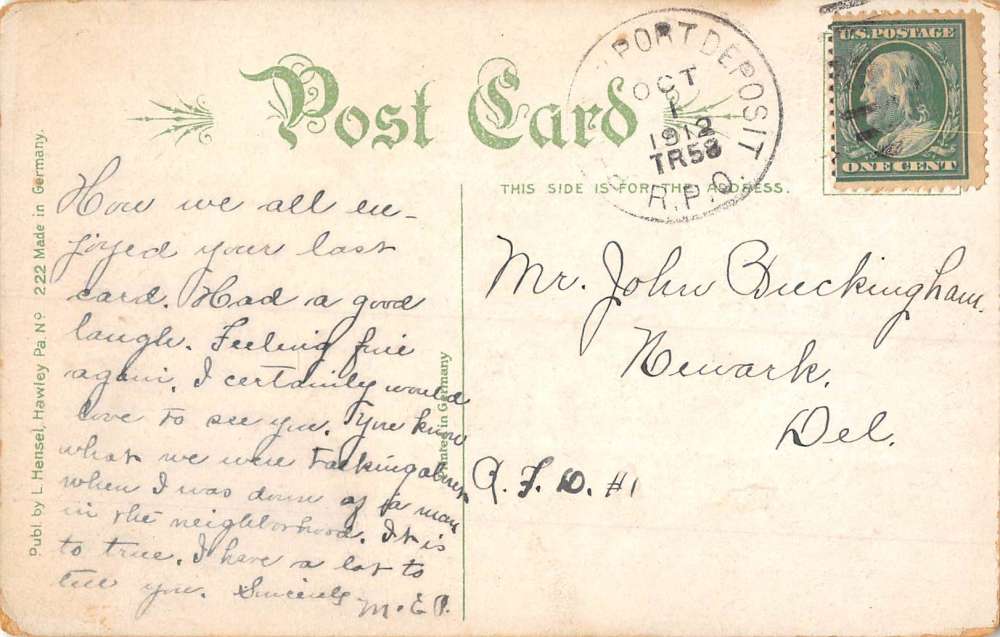 Post Card
THIS SIDE IS FOR THE ADDRESS.
PORT DEPOSIT
OCT
1
1912
TR58
R.P.O.
U.S. POSTAGE
ONE CENT
Publ. by L. Hensel, Hawley Pa. No 222 Made in Germany.
Printed in Germany
How we all en-
joyed your last
card. Had a good
laugh. Feeling fine
again. I certainly would
love to see you. You know
what we were talking about
when I was down of a man
in the neighborhood. It is
to true. I have a lot to
tell you. Sincerely
M.E.P.
Mr. John Buckingham.
Newark.
Del.
R.F.D. #1